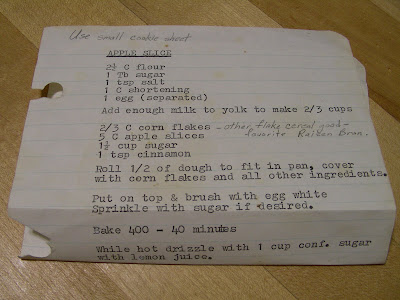 Use small cookie sheet
APPLE SLICE
2½ C flour
1 Tb sugar
1 tsp salt
1 C shortening
1 egg (separated)
Add enough milk to yolk to make 2/3 cups
2/3 C corn flakes - other flake cereal good -
5 C apple slices favorite Raisen Bran.
1½ cup sugar
1 tsp cinnamon
Roll 1/2 of dough to fit in pan, cover
with corn flakes and all other ingredients.
Put on top & brush with egg white
Sprinkle with sugar if desired.
Bake 400 - 40 minutes
While hot drizzle with 1 cup conf. sugar
with lemon juice.